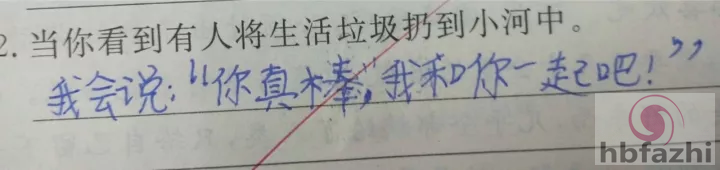 2.当你看到有人将生活垃圾扔到小河中。
我会说:“你真棒,我和你一起吧!”
hbfazhi